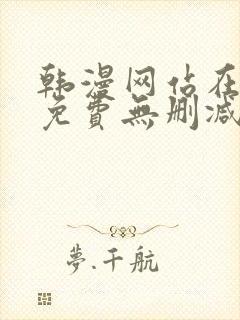 韩漫网站在
免費無删减
夢.千航